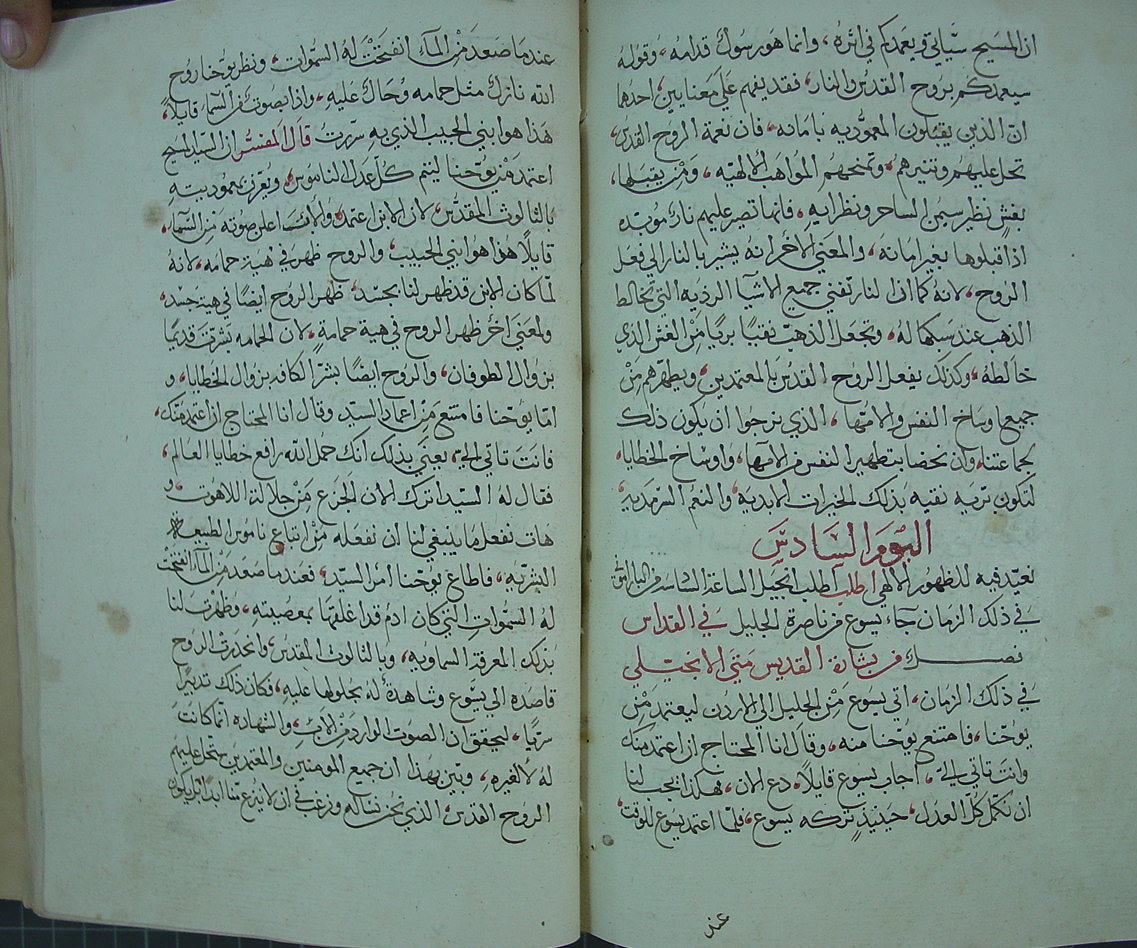 ان المسيح سياتي ويعمدكم في اثره، وانما هو رسول قدامه، وقوله
سيعمدكم بروح القدس والنار، فقد يفهم علي معنايين، احدهما
ان الذين يقبلون المعموديه بامانه، فان نعمة الروح القدس،
تحل عليهم وتنيرهم، وتمنحهم المواهب الالهيه، ومن يقبلها،
بغش نظير سيمن الساحر ونظرايه، فانها تصير عليهم نار مويده
اذا قبلوها بغير امانه، والمعني الاخر انه يشير بالنار الي فعل
الروح، لانه كما ان النار تفني جميع الاشيا الرذيه التي تخالط
الذهب عند سبكها له، وتجعل الذهب نقيًا بريًا من الغش الذي
خالطه، وكذلك يفعل الروح القدس بالمعتمدين، ويطهرهم من
جميع اوساخ النفس والامها، الذي نرجوا ان يكون ذلك
لجماعتنا، وان نحضا بتطهير النفس من الامها، واوساخ الخطايا،
لتكون نريه نقيه بذلك الخيرات الابديه، والنعم السرمديه،
اليوم السادس
نعيد فيه للظهور الالهي اطلب انجيل الساعة السادسه من البارامون
في ذلك الزمان جآء يسوع من ناصرة الجليل في القداس
فصل من بشارة القديس متي الانجيلي
في ذلك الزمان، اتي يسوع من الجليل الي الاردن ليعتمد من
يوحنا، فامتنع يوحنا منه، وقال انا المحتاج ان اعتمد منك
وانت تاتي الي، اجاب يسوع قايلاً، دع الان، فهكذا يجب لنا
ان نكمل كل العدل، حينيذٍ تركه يسوع، فلما اعتمد يسوع للوقت،
عند
عندما صعد من المآء انفتحت له السموات، ونظر يوحنا روح
الله نازل مثل حمامه وحال عليه، واذا بصوت من السما قايلاً،
هذا هو ابني الحبيب الذي به سررت قال المفسر ان السيد المسيح
اعتمد من يوحنا ليتم كل عدل الناموس، ويقرن معموديته
بالثالوث المقدس، لان الابن اعتمد، والاب اعلن صوته من السمآء،
قايلاً هذا هو ابني الحبيب، والروح ظهر في هية حمامه، لانه
لما كان الابن قد ظهر لنا بجسد، ظهر الروح ايضًا في هية جسد،
ولمعني اخر ظهر الروح في هية حمامة، لان الحمامه بشرت قديمًا
بزوال الطوفان، والروح ايضًا بشر الكافه بزوال الخطايا، و
اما يوحنا فامتنع من اعماد السيد، وقال انا المحتاج ان اعتمد منك،
فانت تاتي الي، يعني بذلك انك حمل الله رافع خطايا العالم،
فقال له السيد اترك الان الجزع من جلالة اللاهوت، و
هات نفعل ما ينبغي لنا ان نفعله من اتباع ناموس الطبيعه
البشريه، فاطاع يوحنا امر السيد، فعندما صعد من المآء انفتحت
له السموات التي كان ادم قد اغلقها بمعصيته، وظهرت لنا
بذلك المعرفة السماويه، وبالثالوث المقدس، وانحدرت الروح
قاصده الي يسوع وشاهدة له بحلولها عليه، فكان ذلك تدبيرًا
سريًا، ليحقق ان الصوت الوارد من الاب، والشهاده انما كانت
له لا لغيره، وتبين بهذا ان جميع المومنين والمعتمدين تحل عليهم
الروح القدس، الذي نحن نساله ونرغب في ان لا ينزع منا ابدًا